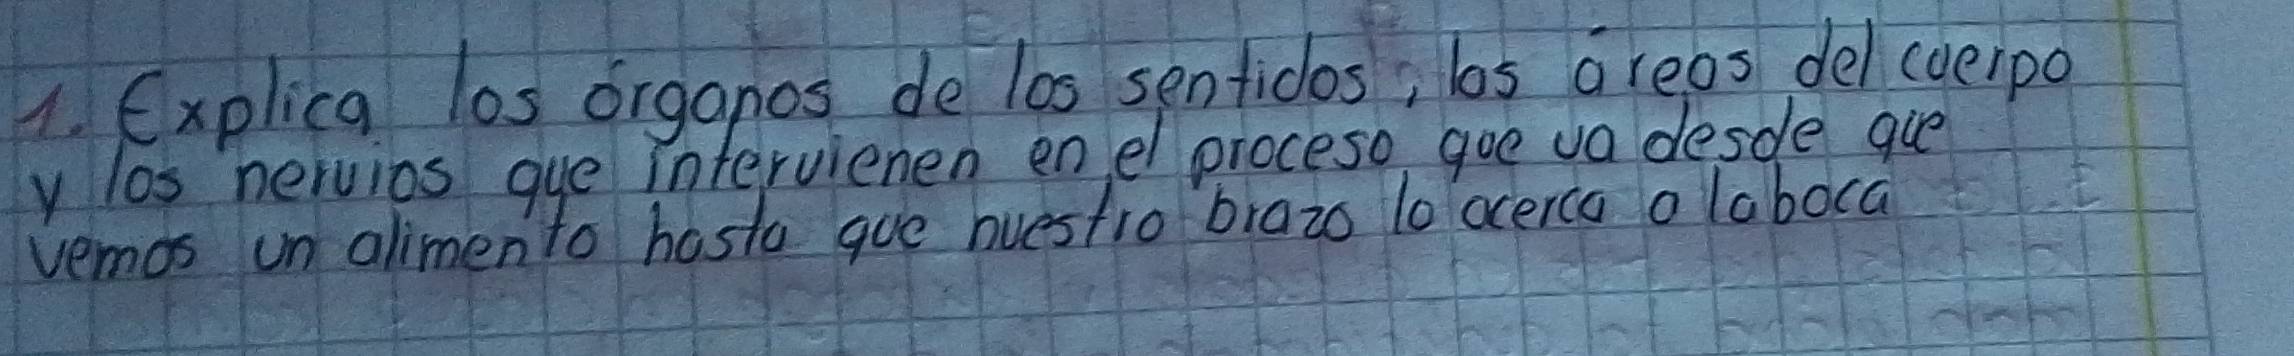 1. Explica los órganos de los sentidos, las áreas del cuerpo
y los nervios que intervienen en el proceso que va desde que
vemos un alimento hasta que nuestro brazo lo acerca a la boca